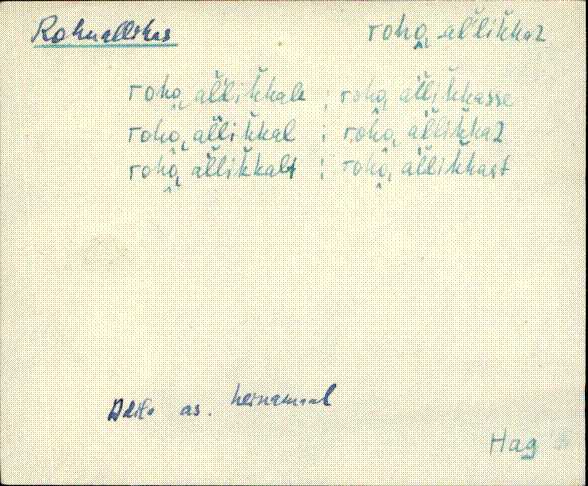 Rohuallikas rohŏ̭ al̆lik̆kaz
roho̭ al̆lik̆kale ; roho̭ al̆lik̆kasse
roho̭ al̆lik̆kal ; roho̭ al̆lik̆kaz
roho̭ al̆lik̆kalt ; roho̭ al̆lik̆kast
as. heinamaal
Hag